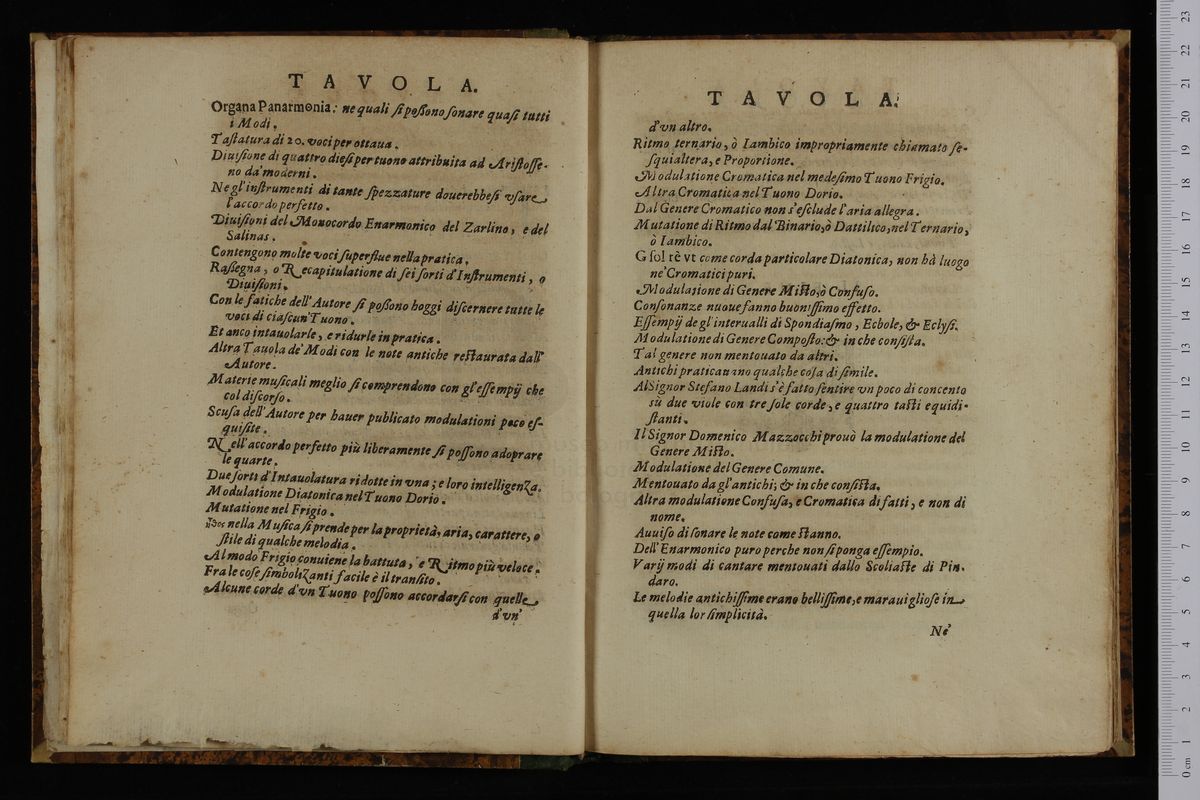 TAVOLA.
Organa Panarmonia: ne quali ſi poſſono ſonare quaſi tutti
i Modi.
Taſtatura di 20. voci per ottaua.
Diuiſione di quattro dieſi per tuono attribuita ad Ariſtoſſe-
no da' moderni.
Negl'inſtrumenti di tante ſpezzature douerebbeſi vſare
l'accordo perfetto.
Diuiſioni del Monocordo Enarmonico del Zarlino, e del
Salinas.
Contengono molte voci ſuperflue nella pratica.
Raſſegna, o Recapitulatione di ſei ſorti d'Inſtrumenti, o
Diuiſioni.
Con le fatiche dell'Autore ſi poſſono hoggi diſcernere tutte le
voci di ciaſcun Tuono.
Et anco intauolarle, e ridurle in pratica.
Altra Tauola de' Modi con le note antiche reſtaurata dall'
Autore.
Materie muſicali meglio ſi comprendono con gl'eſſempij che
col diſcorſo.
Scuſa dell'Autore per hauer publicato modulationi poco eſ-
quiſite.
Nell'accordo perfetto più liberamente ſi poſſono adoprare
le quarte.
Due ſorti d'Intauolatura ridotte in vna; e loro intelligenza.
Modulatione Diatonica nel Tuono Dorio.
Mutatione nel Frigio.
nella Muſica ſi prende per la proprietà, aria, carattere, o
ſtile di qualche melodia.
Al modo Frigio conuiene la battuta, e Ritmo più veloce.
Fra le coſe ſimbolizanti facile è il tranſito.
Alcune corde d'vn Tuono poſſono accordarſi con quelle
d'vn
TAVOLA.
d'vn altro.
Ritmo ternario, ò Iambico impropriamente chiamato ſe-
ſquialtera, e Proportione.
Modulatione Cromatica nel medeſimo Tuono Frigio.
Altra Cromatica nel Tuono Dorio.
Dal Genere Cromatico non s'eſclude l'aria allegra.
Mutatione di Ritmo dal Binario, ò Dattilico, nel Ternario,
ò Iambico.
G ſol rè vt come corda particolare Diatonica, non hà luogo
ne' Cromatici puri.
Modulatione di Genere Miſto, ò Confuſo.
Conſonanze nuoue fanno buoniſſimo effetto.
Eſſempij de gl'interualli di Spondiaſmo, Ecbole, & Eclyſi.
Modulatione di Genere Compoſto: & in che conſiſta.
Tal genere non mentouato da altri.
Antichi praticauano qualche coſa di ſimile.
Al Signor Stefano Landi s'è fatto ſentire vn poco di concento
sù due viole con tre ſole corde, e quattro taſti equidi-
ſtanti.
Il Signor Domenico Mazzocchi prouò la modulatione del
Genere Miſto.
Modulatione del Genere Comune.
Mentouato da gl'antichi; & in che conſiſta.
Altra modulatione Confuſa, e Cromatica di fatti, e non di
nome.
Auuiſo di ſonare le note come ſtanno.
Dell'Enarmonico puro perche non ſi ponga eſſempio.
Varij modi di cantare mentouati dallo Scoliaſte di Pin-
daro.
Le melodie antichiſſime erano belliſſime, e marauiglioſe in
quella lor ſimplicità.
Ne'